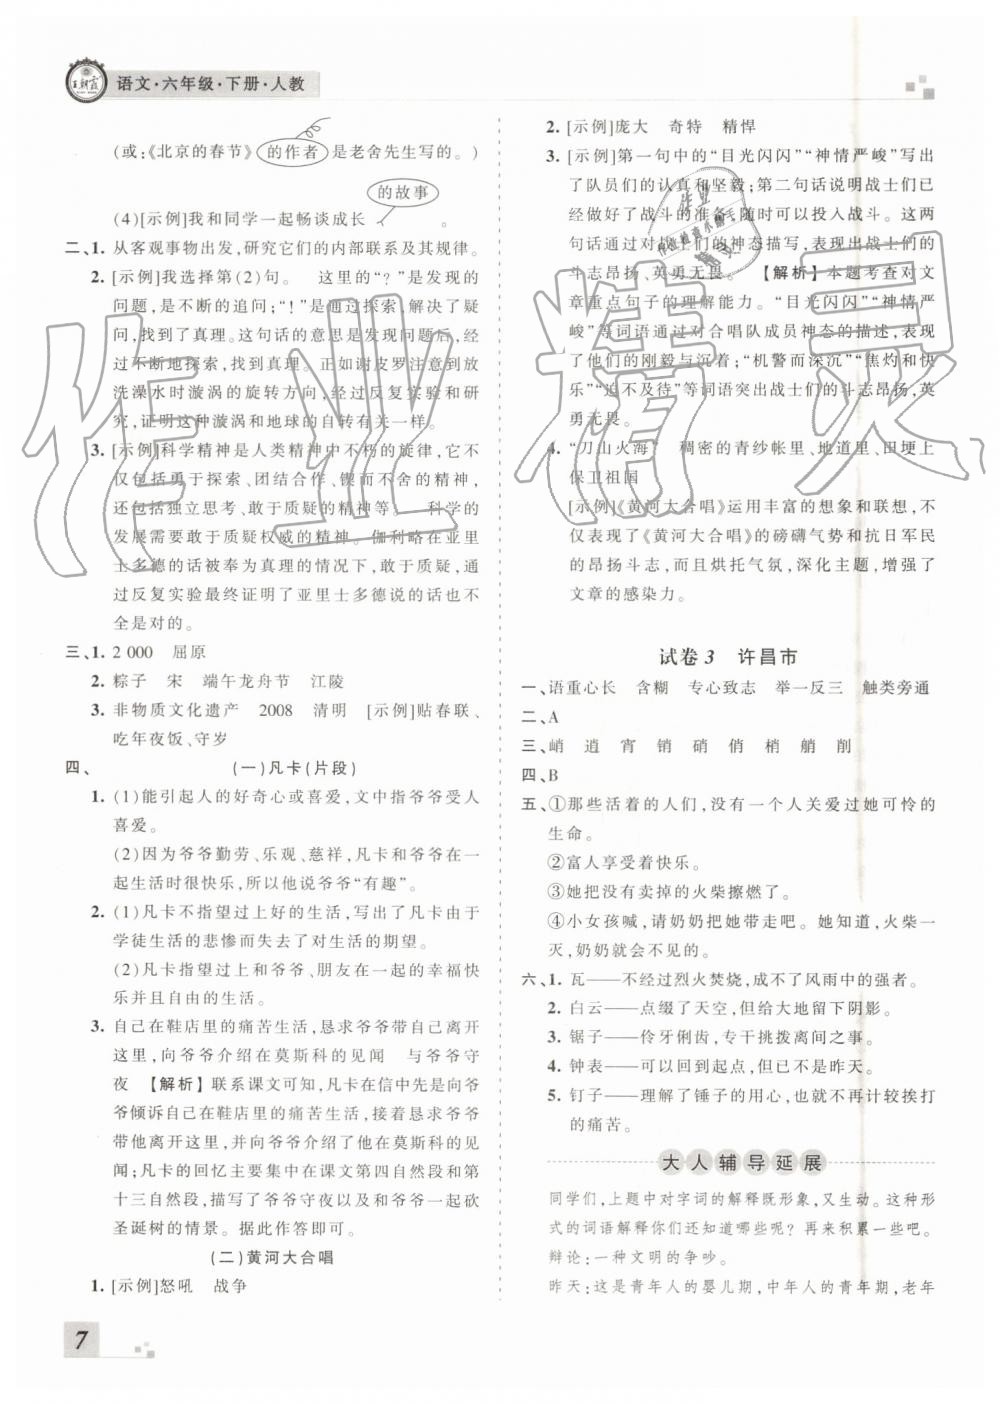 王朝霞
语文·六年级·下册·人教
(或:《北京的春节》的作者是老舍先生写的。)
的故事
(4)[示例]我和同学一起畅谈成长 。
二、1. 从客观事物出发,研究它们的内部联系及其规律。
2. [示例]我选择第(2)句。 这里的“?”是发现的
问题,是不断的追问;“!”是通过探索,解决了疑
问,找到了真理。这句话的意思是发现问题后,经
过不断地探索,找到真理。正如谢皮罗注意到放
洗澡水时漩涡的旋转方向,经过反复实验和研
究,证明这种漩涡和地球的自转有关一样。
3. [示例]科学精神是人类精神中不朽的旋律,它不
仅包括勇于探索、团结合作、锲而不舍的精神,
还包括独立思考、敢于质疑的精神等。 科学的
发展需要敢于质疑权威的精神。伽利略在亚里
士多德的话被奉为真理的情况下,敢于质疑,通
过反复实验最终证明了亚里士多德说的话也不
全是对的。
三、1. 2 000 屈原
2. 粽子 宋 端午龙舟节 江陵
3. 非物质文化遗产 2008 清明 [示例]贴春联、
吃年夜饭、守岁
四、 (一)凡卡(片段)
1. (1)能引起人的好奇心或喜爱,文中指爷爷受人
喜爱。
(2)因为爷爷勤劳、乐观、慈祥,凡卡和爷爷在一
起生活时很快乐,所以他说爷爷“有趣”。
2. (1)凡卡不指望过上好的生活,写出了凡卡由于
学徒生活的悲惨而失去了对生活的期望。
(2)凡卡指望过上和爷爷、朋友在一起的幸福快
乐并且自由的生活。
3. 自己在鞋店里的痛苦生活,恳求爷爷带自己离开
这里,向爷爷介绍在莫斯科的见闻 与爷爷守
夜 【解析】联系课文可知,凡卡在信中先是向爷
爷倾诉自己在鞋店里的痛苦生活,接着恳求爷爷
带他离开这里,并向爷爷介绍了他在莫斯科的见
闻;凡卡的回忆主要集中在课文第四自然段和第
十三自然段,描写了爷爷守夜以及和爷爷一起砍
圣诞树的情景。据此作答即可。
(二)黄河大合唱
1. [示例]怒吼 战争
2. [示例]庞大 奇特 精悍
3. [示例]第一句中的“目光闪闪”“神情严峻”写出
了队员们的认真和坚毅;第二句话说明战士们已
经做好了战斗的准备,随时可以投入战斗。这两
句话通过对战士们的神态描写,表现出战士们的
斗志昂扬、英勇无畏。 【解析】本题考查对文
章重点句子的理解能力。“目光闪闪”“神情严
峻”等词语通过对合唱队成员神态的描述,表现
了他们的刚毅与沉着;“机警而深沉”“焦灼和快
乐”“迫不及待”等词语突出战士们的斗志昂扬,英
勇无畏。
4. “刀山火海” 稠密的青纱帐里、地道里、围埂上
保卫祖国
[示例]《黄河大合唱》运用丰富的想象和联想,不
仅表现了《黄河大合唱》的磅礴气势和抗日军民
的昂扬斗志,而且烘托气氛,深化主题,增强了
文章的感染力。
试卷3 许昌市
一、语重心长 含糊 专心致志 举一反三 触类旁通
二、A
三、峭 逍 宵 销 硝 俏 梢 艄 削
四、B
五、①那些活着的人们,没有一个人关爱过她可怜的
生命。
②富人享受着快乐。
③她把没有卖掉的火柴擦燃了。
④小女孩喊,请奶奶把她带走吧。她知道,火柴一
灭,奶奶就会不见的。
六、1. 瓦——不经过烈火焚烧,成不了风雨中的强者。
2. 白云——点缀了天空,但给大地留下阴影。
3. 锯子——伶牙俐齿,专干挑拨离间之事。
4. 钟表——可以回到起点,但已不是昨天。
5. 钉子——理解了锤子的用心,也就不再计较挨打
的痛苦。
大人辅导延展
同学们,上题中对字词的解释既形象,又生动。这种形
式的词语解释你们还知道哪些呢?再来积累一些吧。
辩论:一种文明的争吵。
昨天:这是青年人的婴儿期,中年人的青年期,老年
7
作业精灵